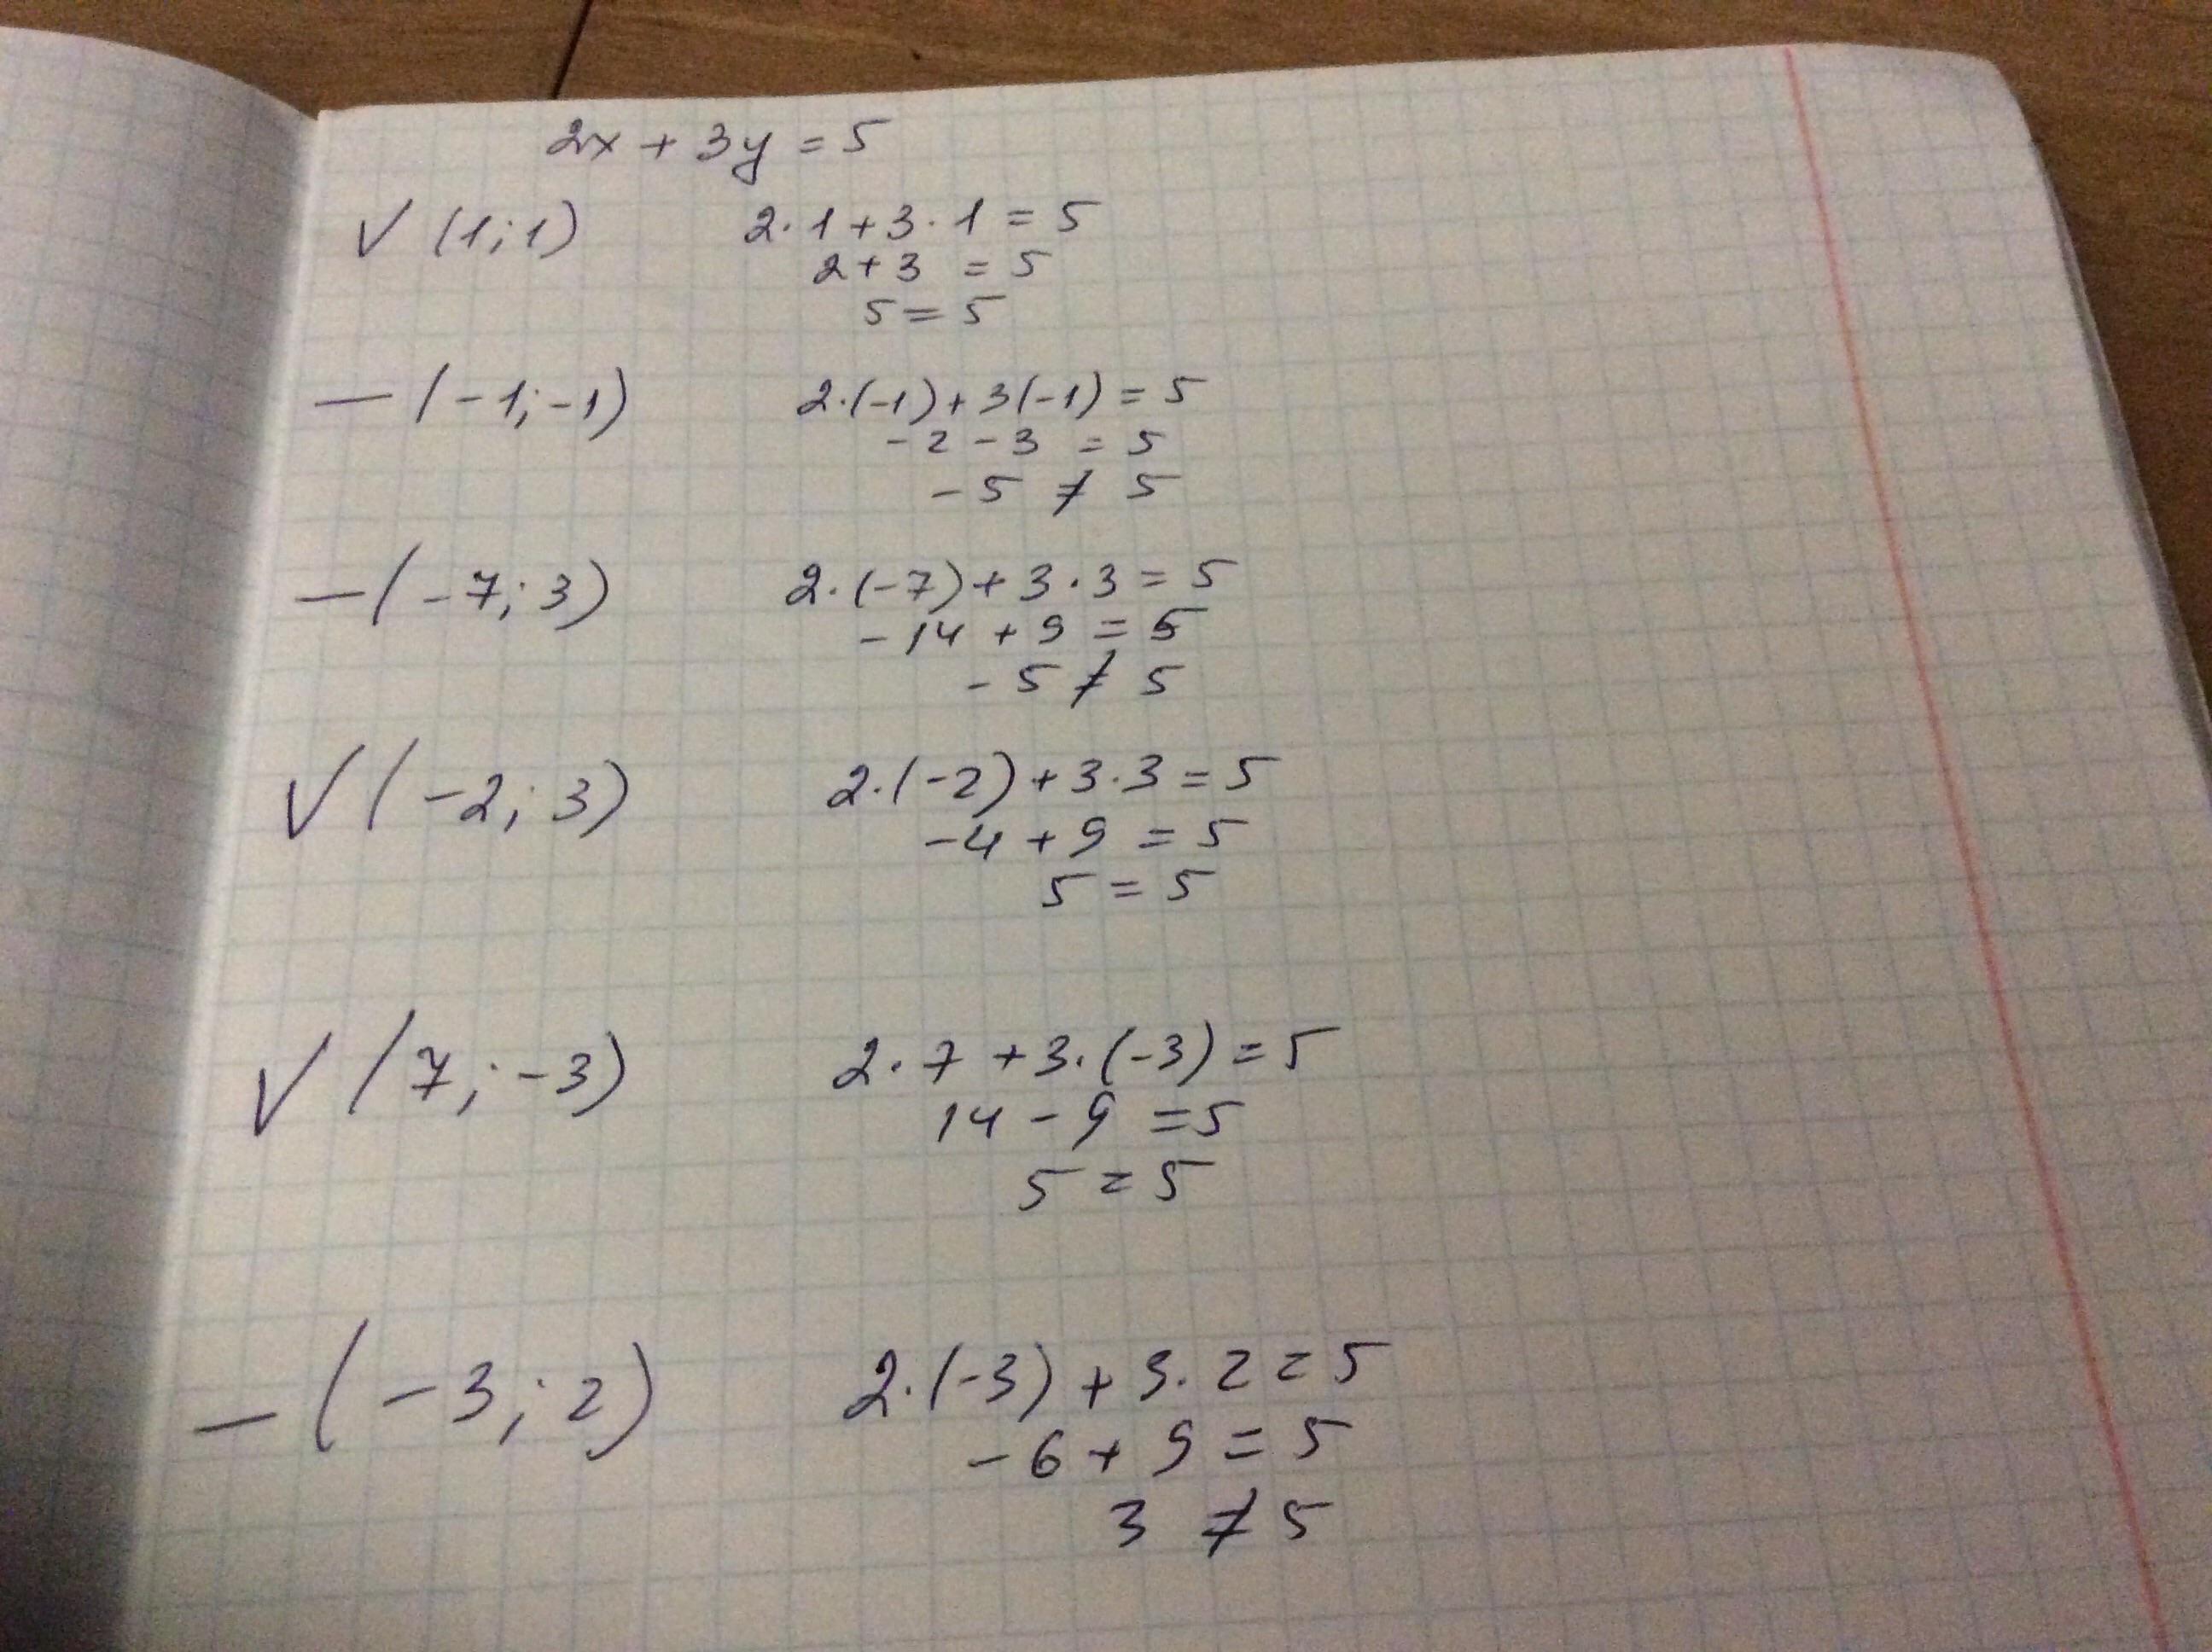 2x + 3y = 5
✓ (1; 1) 2·1 + 3·1 = 5
2 + 3 = 5
5 = 5
— (-1; -1) 2·(-1) + 3(-1) = 5
-2 - 3 = 5
-5 ≠ 5
— (-7; 3) 2·(-7) + 3·3 = 5
-14 + 9 = 5
-5 ≠ 5
✓ (-2; 3) 2·(-2) + 3·3 = 5
-4 + 9 = 5
5 = 5
✓ (7; -3) 2·7 + 3·(-3) = 5
14 - 9 = 5
5 = 5
— (-3; 2) 2·(-3) + 3·2 = 5
-6 + 9 = 5
3 ≠ 5